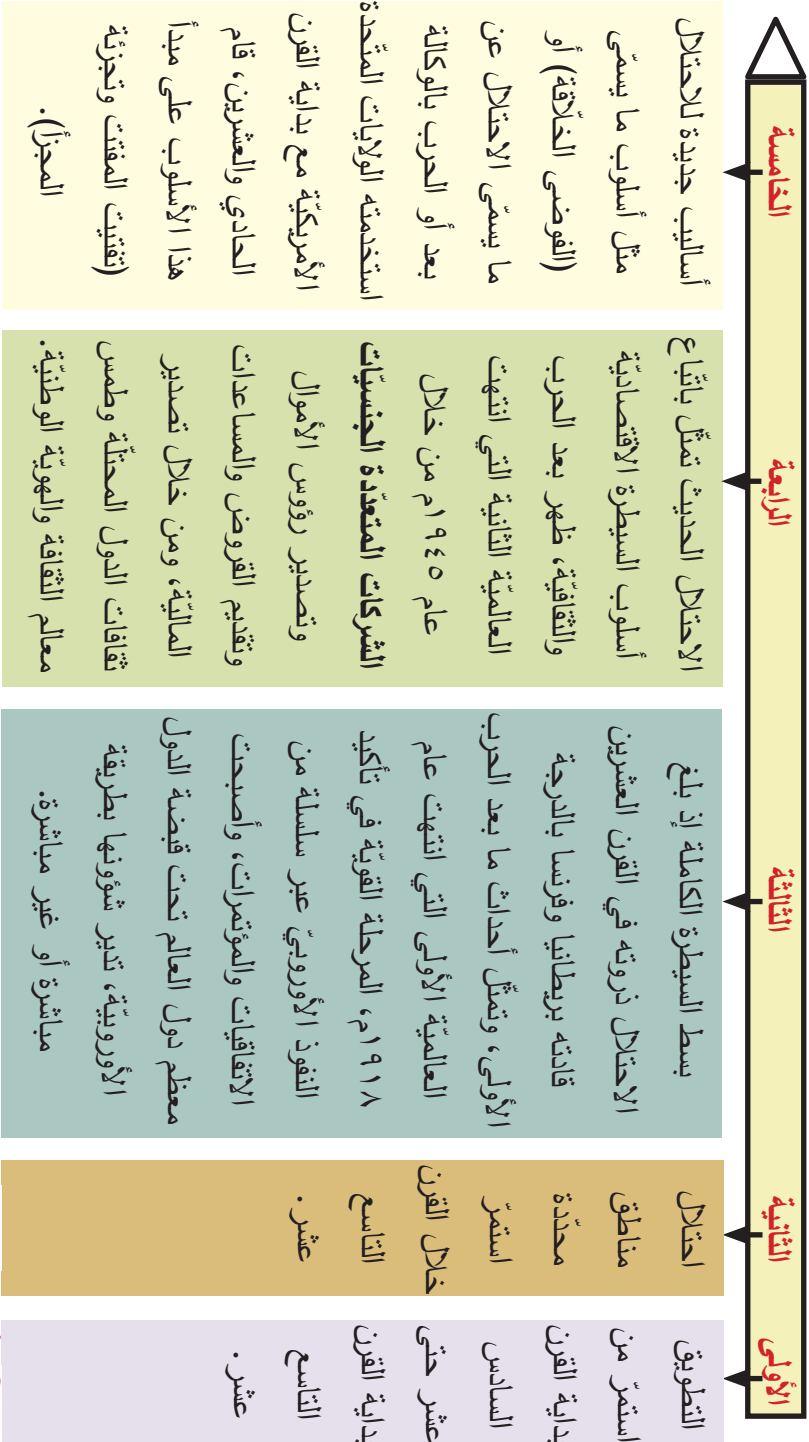 الأولى
التطويق
استمرّ من
بداية القرن
السادس
عشر حتى
بداية القرن
التاسع
عشر.
الثانية
احتلال
مناطق
محدّدة
استمرّ
خلال القرن
التاسع
عشر.
الثالثة
بسط السيطرة الكاملة إذ بلغ
الاحتلال ذروته في القرن العشرين
قادته بريطانيا وفرنسا بالدرجة
الأولى، وتمثّل أحداث ما بعد الحرب
العالميّة الأولى التي انتهت عام
١٩١٨م، المرحلة القويّة في تأكيد
النفوذ الأوروبيّ عبر سلسلة من
الاتفاقيات والمؤتمرات، وأصبحت
معظم دول العالم تحت قبضة الدول
الأوروبيّة، تدير شؤونها بطريقة
مباشرة أو غير مباشرة.
الرابعة
الاحتلال الحديث تمثّل باتّباع
أسلوب السيطرة الاقتصاديّة
والثقافيّة، ظهر بعد الحرب
العالميّة الثانية التي انتهت
عام ١٩٤٥م من خلال
الشركات المتعدّدة الجنسيّات
وتصدير رؤوس الأموال
وتقديم القروض والمساعدات
الماليّة، ومن خلال تصدير
ثقافات الدول المحتلّة وطمس
معالم الثقافة والهويّة الوطنيّة.
الخامسة
أساليب جديدة للاحتلال
مثل أسلوب ما يسمّى
(الفوضى الخلّاقة) أو
ما يسمّى الاحتلال عن
بعد أو الحرب بالوكالة
استخدمته الولايات المتّحدة
الأمريكيّة مع بداية القرن
الحادي والعشرين، قام
هذا الأسلوب على مبدأ
(تفتيت المفتت وتجزئة
المجزأ).